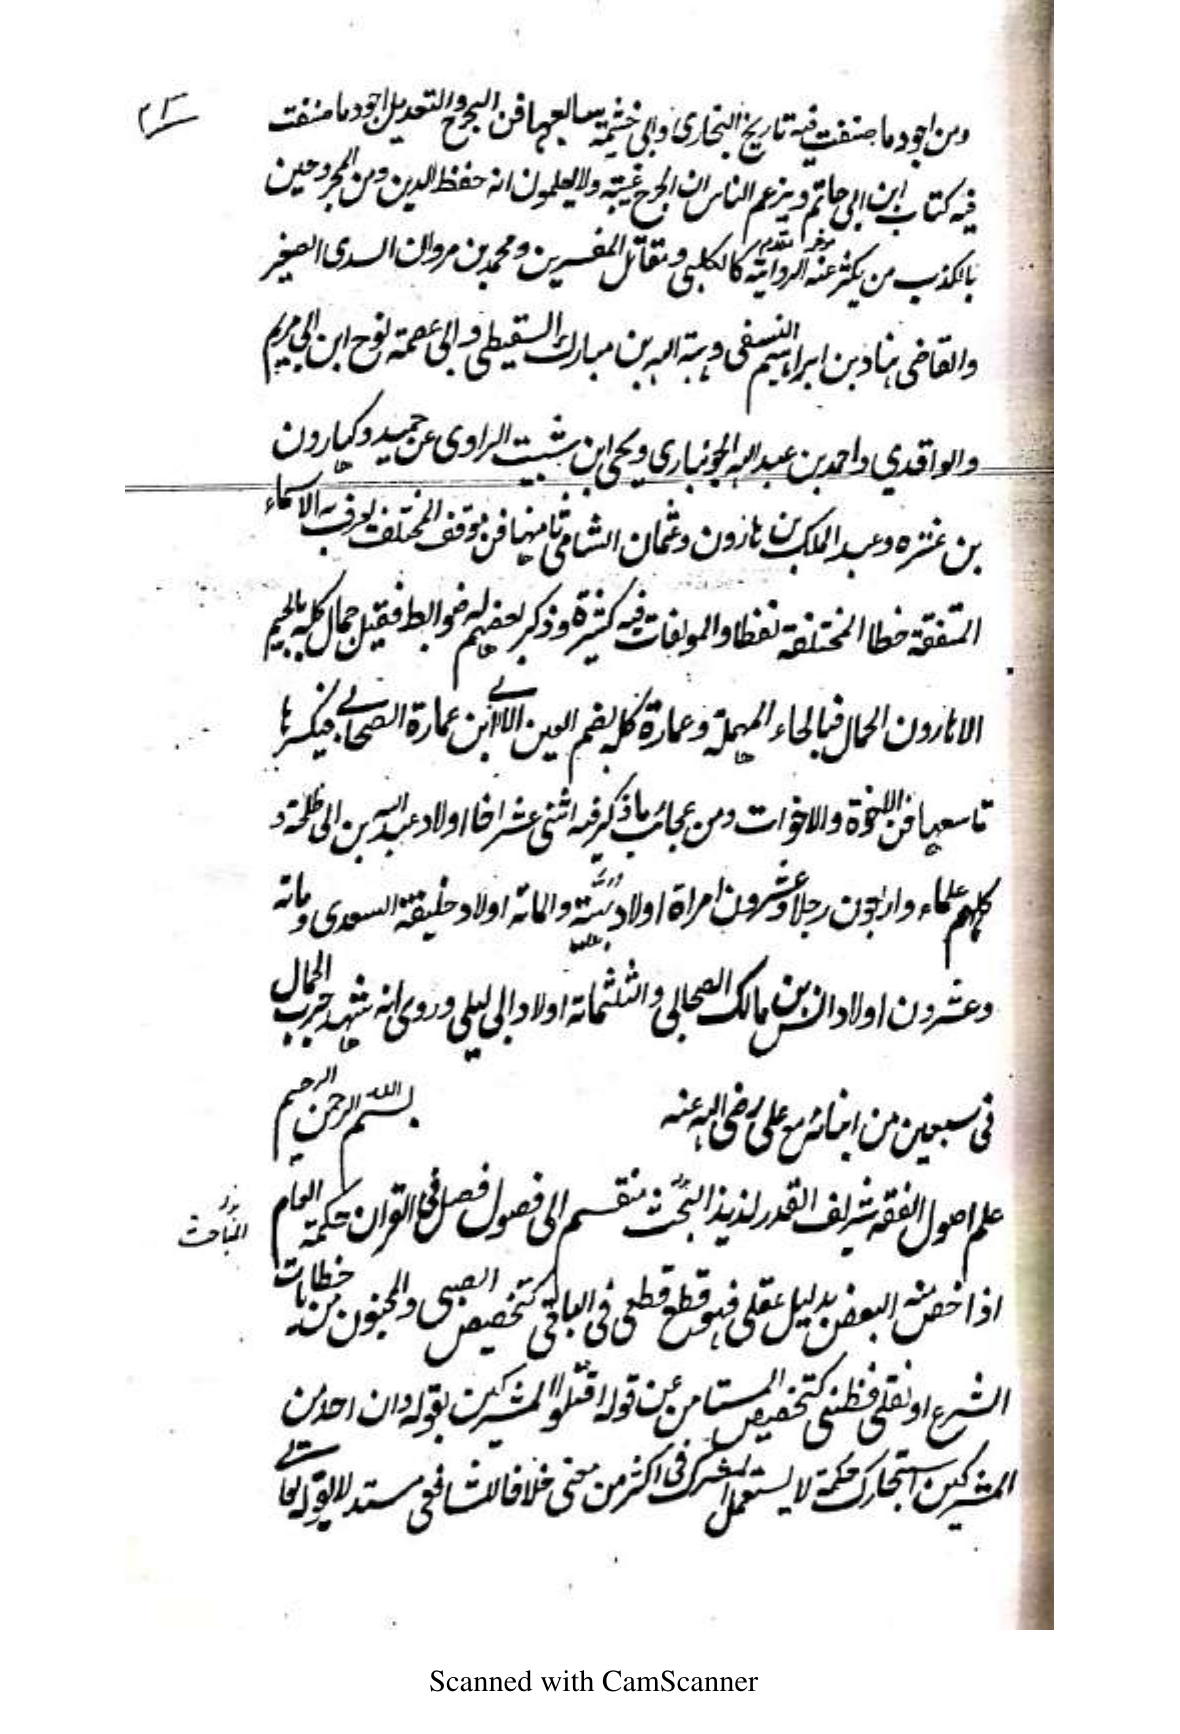 ٢١
ومن اجود ما صنفت فيه تاريخ البخارى وابى خثيمة سابعها فن الجرح والتعديل اجود ما صنفت
فيه كتاب ابن ابى حاتم ويزعم الناس ان الجرح غيبته ولا يعلمون انه حفظ الدين ومن المجروحين
بالكذب من يكثر عنه الرواية كالكلبى ومقاتل المفسرين ومحمد بن مروان السدى الصغير
مؤخر مقدم
والقاضى هناد بن ابراهيم النسفى وهبة الله بن مبارك السقيطى وابى عصمة نوح ابن ابى مريم
والواقدي واحمد بن عبد الله الجونبارى ويحى ابن شبيت الراوى عن حميد وكهارون
بن عنتره وعبد الملك بن هارون وعثمان الشامى ثامنها فن يوقف المختلف يعرف به الاسماء
المتفقة خطا المختلفة تفظا والمولفات فيه كثيرة وذكر بعضهم له ضوابط فقيل جمال كله بالجيم
الا هارون الحمال فبا لحاء المهملة وعمارة كله بضم العين الا ابى ابن عمارة الصحابى فبكسرها
تاسعها فن الاخوة والاخوات ومن عجائب ما ذكر فيه اثنى عشر اخا اولاد عبد الله بن ابى طلحة و
كلهم علماء واربعون رجلا وعشرون امراة اولاد والمائة اولاد خليفة السعدى ومائة
وعشرون اولاد انس بن مالك الصحابى والثلثمائة اولاد ابى ليلى وروى انه شهد حرب الجمال
فى سبعين من ابنائه مع على رضى الله عنه بسم الله الرحمن الرحيم
علم اصول الفقه شريف القدر لذيذ البحث منقسم الى فصول فصل فى القران حكمة العام
المباحث
اذا خص منه البعض بدليل عقلى فهو قطع قطعى فى الباقى كتخصيص الصبى والمجنون من خطابات
الشرع او نقلى فظنى كتخصيص المستامن عن قوله اقتلوا المشركين بقوله وان احد من
المشركين استجارك حكمة لا يستعمل المشترك فى اكثر من معنى خلافا للشافعى مستدلا بقوله تعا